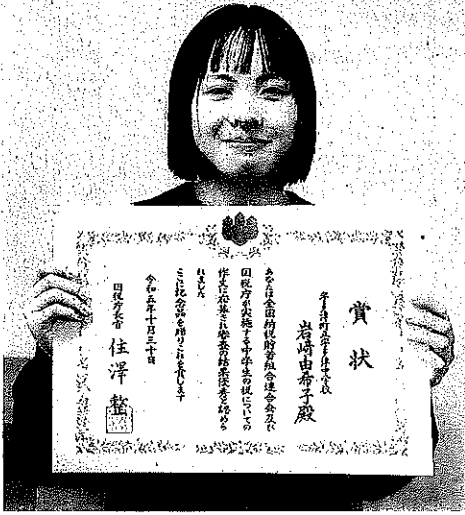 賞状
宇多津町立宇多津中学校
岩崎由希子殿
あなたは全国納税貯蓄組合連合会及び
国税庁が実施する中学生の税についての
作文に応募され審査の結果優秀と認めら
れました
ここに記念品を贈りこれを賞します
令和五年十月三十日
国税庁長官 住澤整